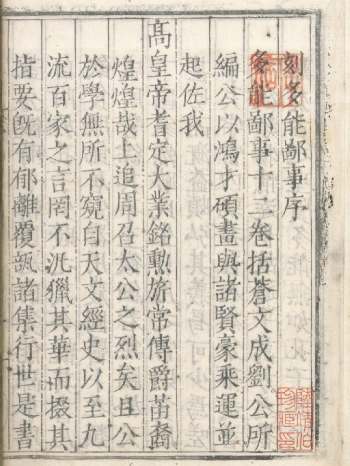 刻多能鄙事序
多能鄙事十二卷括蒼文成劉公所
編公以鴻才碩畫與諸賢豪乘運並
起佐我
高皇帝耆定大業銘勲旂常傳爵苗裔
煌煌哉上追周召太公之烈矣且公
於學無所不窺自天文經史以至九
流百家之言罔不汎獵其華而掇其
指要旣有郁離覆瓿諸集行世是書